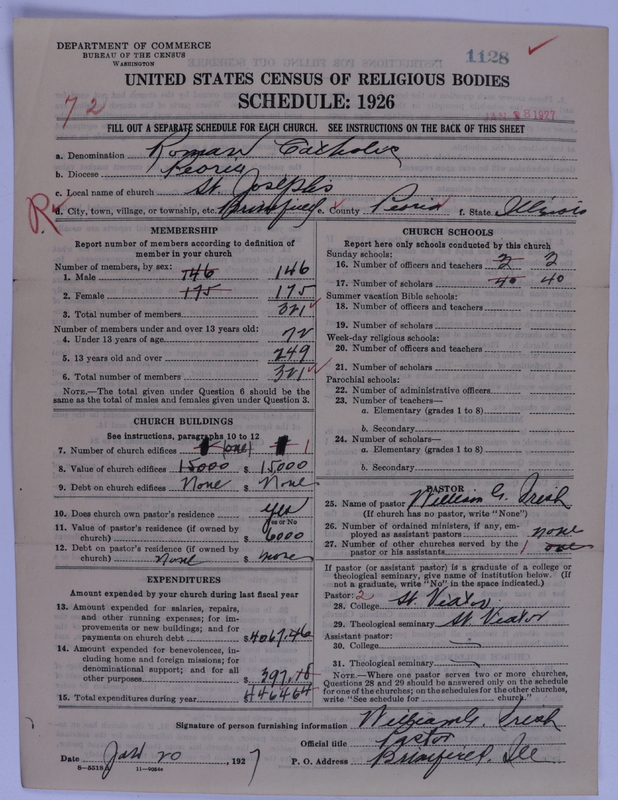 DEPARTMENT OF COMMERCE
BUREAU OF THE CENSUS
WASHINGTON
1128
UNITED STATES CENSUS OF RELIGIOUS BODIES
SCHEDULE: 1926
72
JAN 28 1927
FILL OUT A SEPARATE SCHEDULE FOR EACH CHURCH. SEE INSTRUCTIONS ON THE BACK OF THIS SHEET
a. Denomination Roman Catholic
b. Diocese Peoria
c. Local name of church St. Joseph's
R d. City, town, village, or township, etc. Brimfield e. County Peoria f. State Illinois
MEMBERSHIP
Report number of members according to definition of member in your church
Number of members, by sex:
1. Male 146 146
2. Female 175 175
3. Total number of members 321
Number of members under and over 13 years old:
4. Under 13 years of age 72
5. 13 years old and over 249
6. Total number of members 321
NOTE.—The total given under Question 6 should be the same as the total of males and females given under Question 3.
CHURCH BUILDINGS
See instructions, paragraphs 10 to 12
7. Number of church edifices (one) 1
8. Value of church edifices 15000 $ 15000
9. Debt on church edifices None $ None
10. Does church own pastor's residence? yes
Yes or No
11. Value of pastor's residence (if owned by church) $ 6000
12. Debt on pastor's residence (if owned by church) None $ none
EXPENDITURES
Amount expended by your church during last fiscal year
13. Amount expended for salaries, repairs, and other running expenses; for improvements or new buildings; and for payments on church debt $ 4067.46
14. Amount expended for benevolences, including home and foreign missions; for denominational support; and for all other purposes $ 397.18
15. Total expenditures during year $ 4464.64
CHURCH SCHOOLS
Report here only schools conducted by this church
Sunday schools:
16. Number of officers and teachers 2 2
17. Number of scholars 40 40
Summer vacation Bible schools:
18. Number of officers and teachers
19. Number of scholars
Week-day religious schools:
20. Number of officers and teachers
21. Number of scholars
Parochial schools:
22. Number of administrative officers
23. Number of teachers—
a. Elementary (grades 1 to 8)
b. Secondary
24. Number of scholars—
a. Elementary (grades 1 to 8)
b. Secondary
PASTOR
25. Name of pastor William G. Irish
(If church has no pastor, write "None")
26. Number of ordained ministers, if any, employed as assistant pastors none
27. Number of other churches served by the pastor or his assistants 1 one
If pastor (or assistant pastor) is a graduate of a college or theological seminary, give name of institution below. (If not a graduate, write "No" in the space indicated.)
Pastor: 2
28. College St. Viator
29. Theological seminary St. Viator
Assistant pastor:
30. College
31. Theological seminary
NOTE.—Where one pastor serves two or more churches, Questions 28 and 29 should be answered only on the schedule for one of the churches; on the schedules for the other churches, write "See schedule for ______ church."
Signature of person furnishing information William G. Irish
Official title Pastor
Date Jan 20, 1927 P. O. Address Brimfield, Ill
8—5518